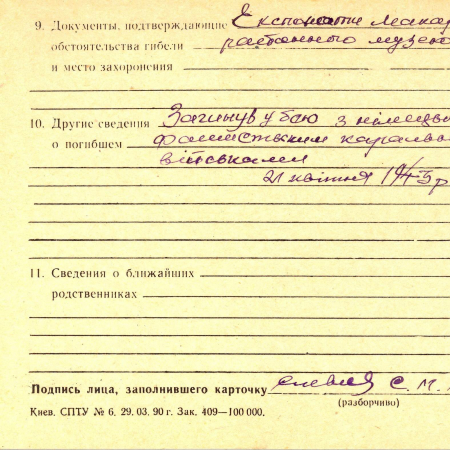 9. Документы, подтверждающие Експонати Мака
обстоятельства гибели районного музею
и место захоронения
10. Другие сведения Загинув у бою з німець
о погибшем фашистським караль
військами
21 квітня 1943 р
11. Сведения о ближайших
родственниках
Подпись лица, заполнившего карточку С. М.
(разборчиво)
Киев. СПТУ № 6. 29. 03. 90 г. Зак. 409—100 000.